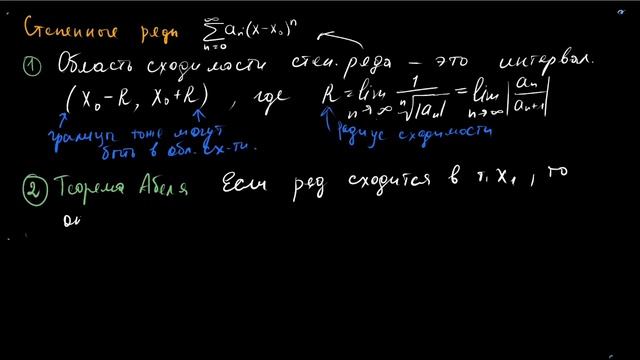 Степенные ряды $\sum_{n=0}^{\infty} a_n (x-x_0)^n$
① Область сходимости степ. ряда – это интервал.
(x₀-R, x₀+R), где $R = \lim_{n \to \infty} \frac{1}{\sqrt[n]{|a_n|}} = \lim_{n \to \infty} \left| \frac{a_n}{a_{n+1}} \right|$
границы тоже могут
быть в обл. сх-ти.
радиус сходимости
② Теорема Абеля Если ряд сходится в т. x₁, то
он